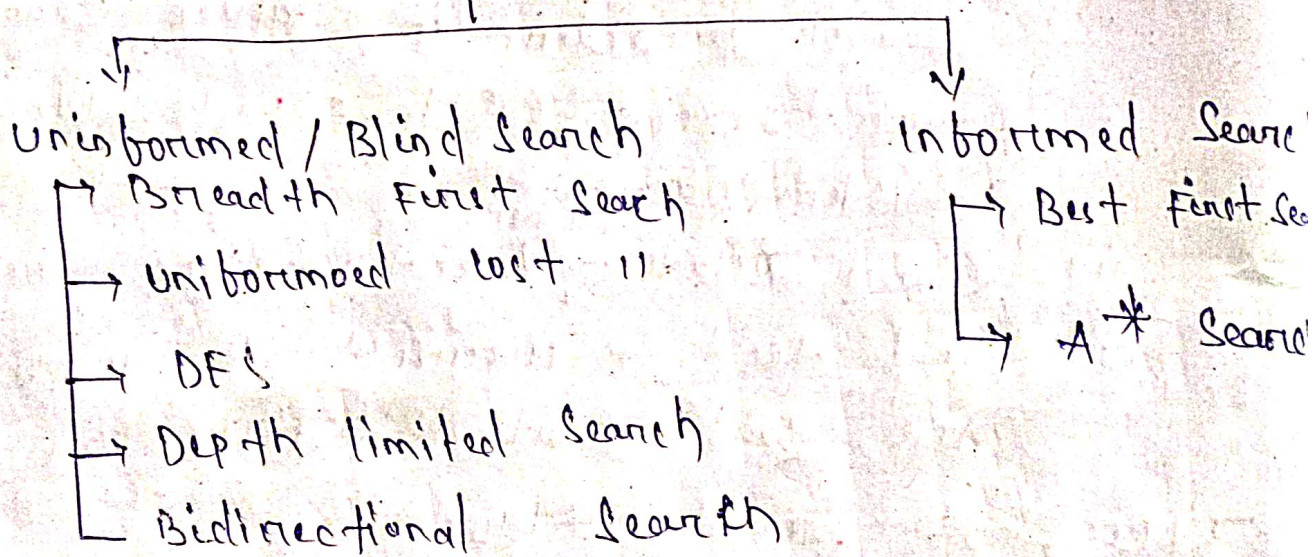 Uninformed / Blind Search
Breadth First Search
Uniformoed cost "
DFS
Depth limited Search
Bidirectional Search
Informed Searc
Best First Sea
A* Searc